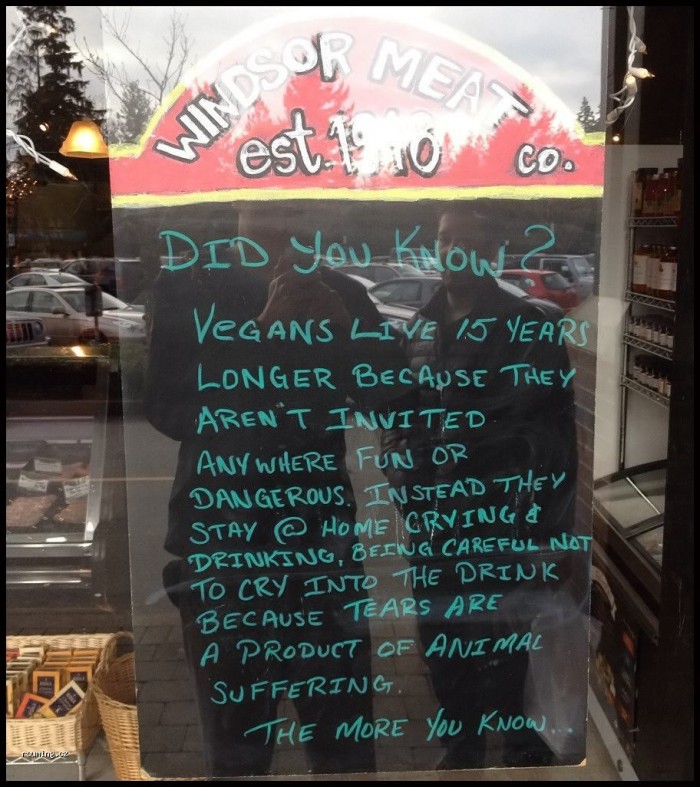 WINDSOR MEAT CO.
est. 1916
DID YOU KNOW?
VEGANS LIVE 15 YEARS
LONGER BECAUSE THEY
AREN'T INVITED
ANYWHERE FUN OR
DANGEROUS. INSTEAD THEY
STAY @ HOME CRYING &
DRINKING, BEING CAREFUL NOT
TO CRY INTO THE DRINK
BECAUSE TEARS ARE
A PRODUCT OF ANIMAL
SUFFERING.
THE MORE YOU KNOW...
rouming.cz